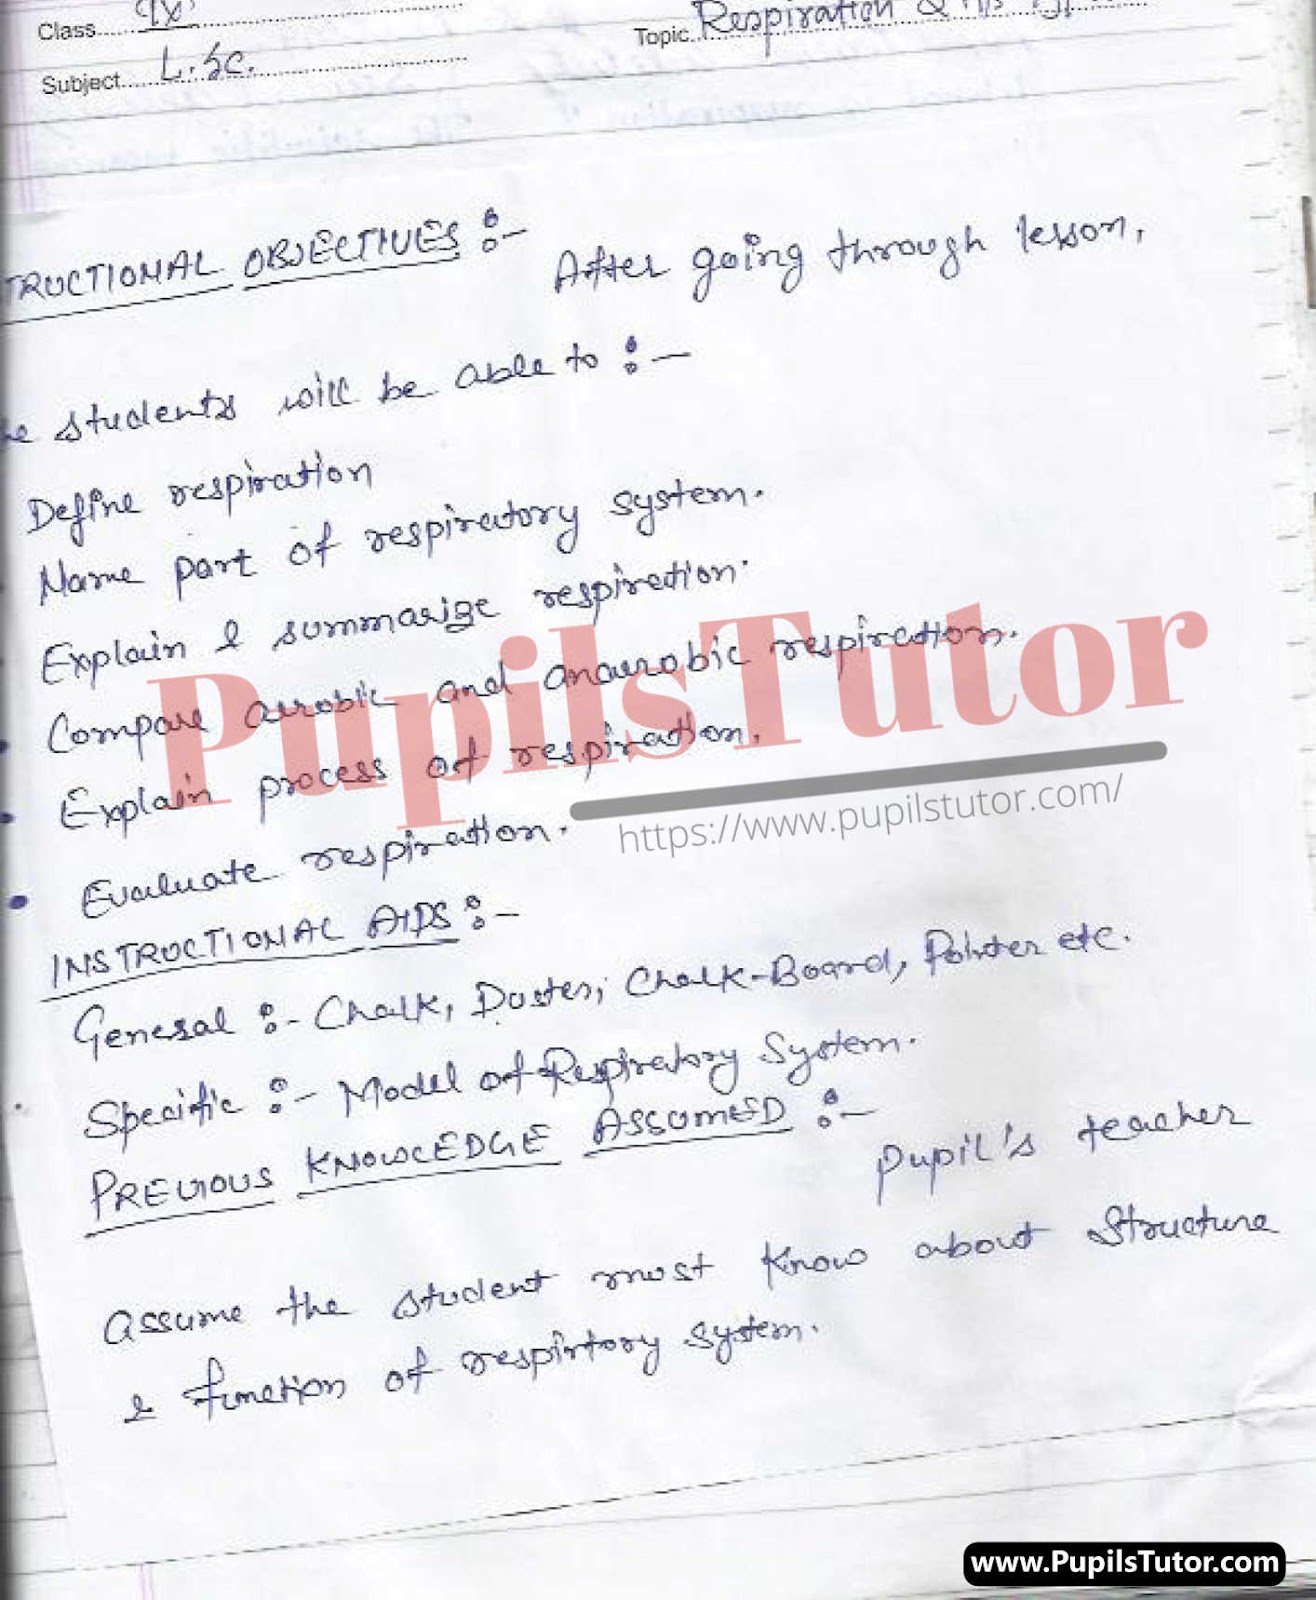 Class
IX
Topic
Respiration &
Subject
L.Sc.
TRUCTIONAL OBJECTIVES :-
After going through lesson,
he students will be able to :-
Define respiration
Name part of respiratory system.
Explain & summarize respiration.
• Compare aerobic and anaerobic respiration.
• Explain process of respiration.
• Evaluate respiration.
INSTRUCTIONAL AIDS :-
General :- Chalk, Duster, Chalk-Board, Pointer etc.
Specific :- Model of Respiratory System.
PREVIOUS KNOWLEDGE ASSUMED :-
Pupil's teacher
assume the student must know about structure
& function of respirtory system.
PupilsTutor
https://www.pupilstutor.com/
www.PupilsTutor.com